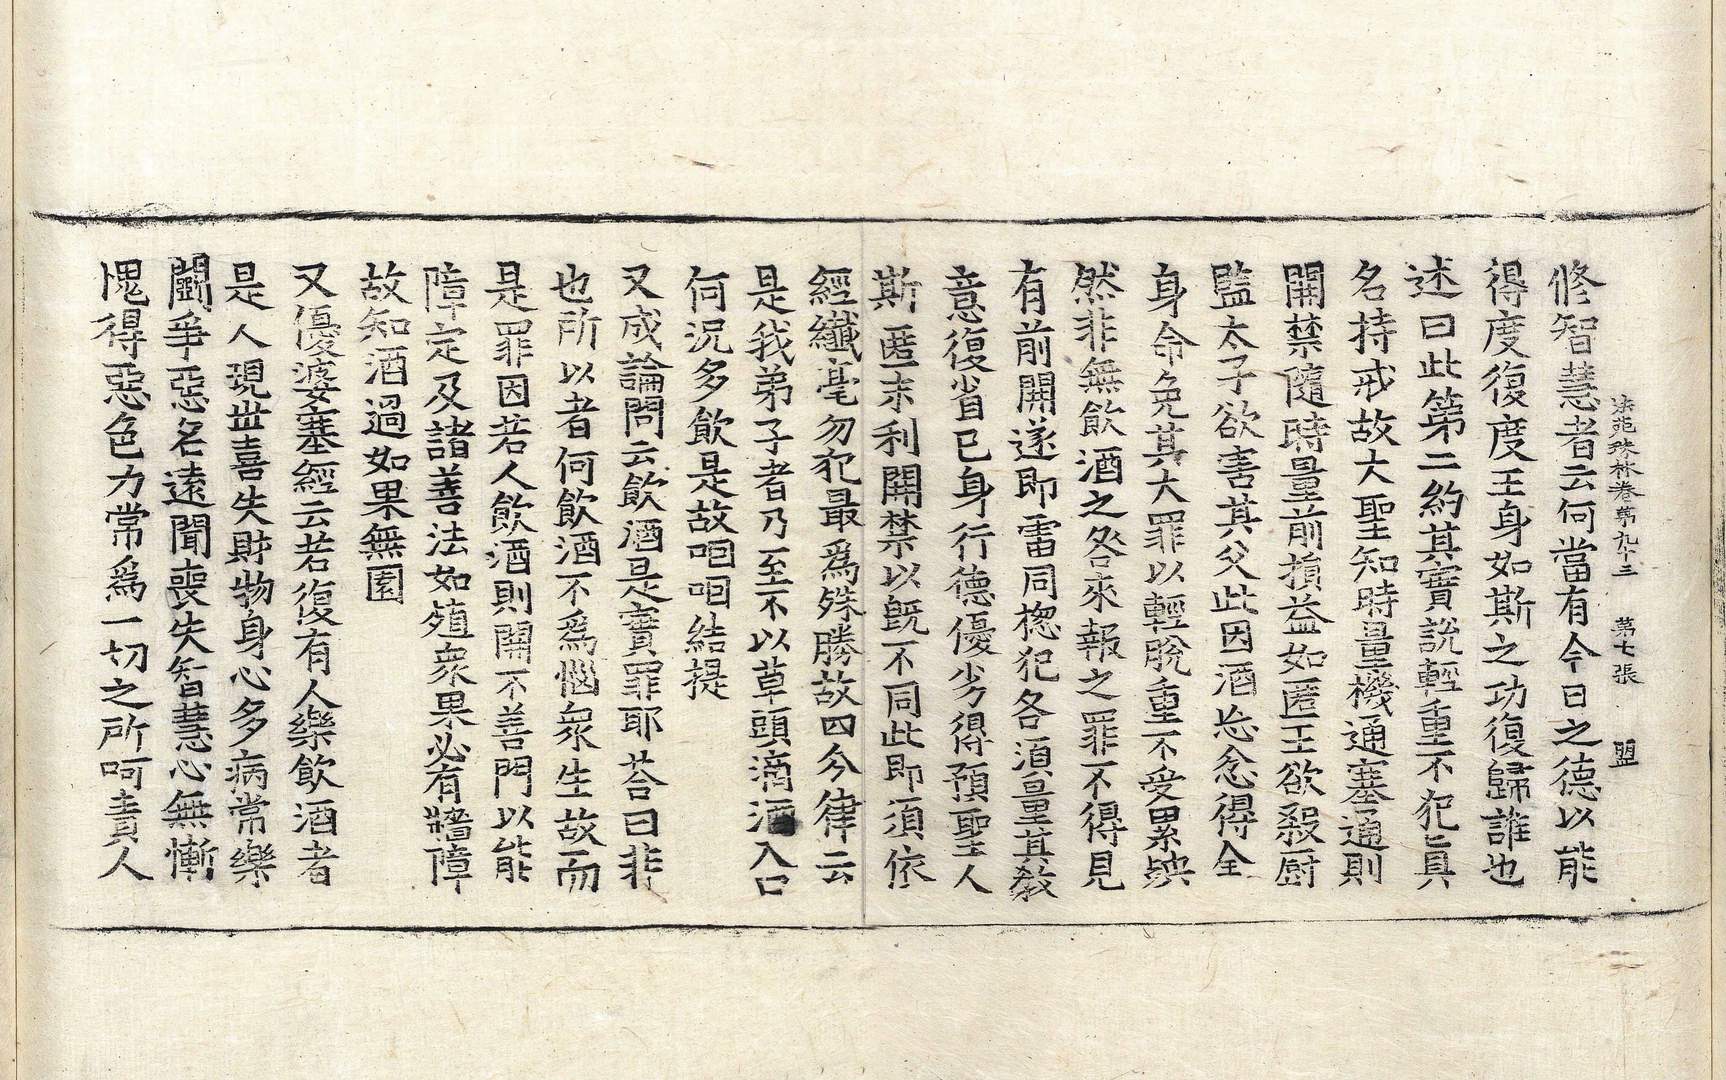 法苑珠林卷第九十三　第七張　盟
修智慧者云何當有今日之德以能
得度復度王身如斯之功復歸誰也
述曰此第二約其實說輕重不犯㫖具
名持戒故大聖知時量機通塞通則
開禁隨時量前損益如匿王欲殺厨
監太子欲害其父此因酒忘念得全
身命免其大罪以輕脫重不受累殃
然非無飲酒之咎來報之罪不得見
有前開遂即雷同揔犯各湏量其教
意復省已身行德優劣得預聖人
斯匿末利開禁以既不同此即須依
經纖毫勿犯最爲殊勝故四分律云
是我弟子者乃至不以草頭滴酒入口
何況多飲是故咽咽結提
又成論問云飲酒是實罪耶荅曰非
也所以者何飲酒不爲惱衆生故而
是罪因若人飲酒則開不善門以能
障定及諸善法如殖衆果必有牆障
故知酒過如果無園
又優婆塞經云若復有人樂飲酒者
是人現丗喜失財物身心多病常樂
鬬爭惡名遠聞喪失智慧心無慚
愧得惡色力常爲一切之所呵責人